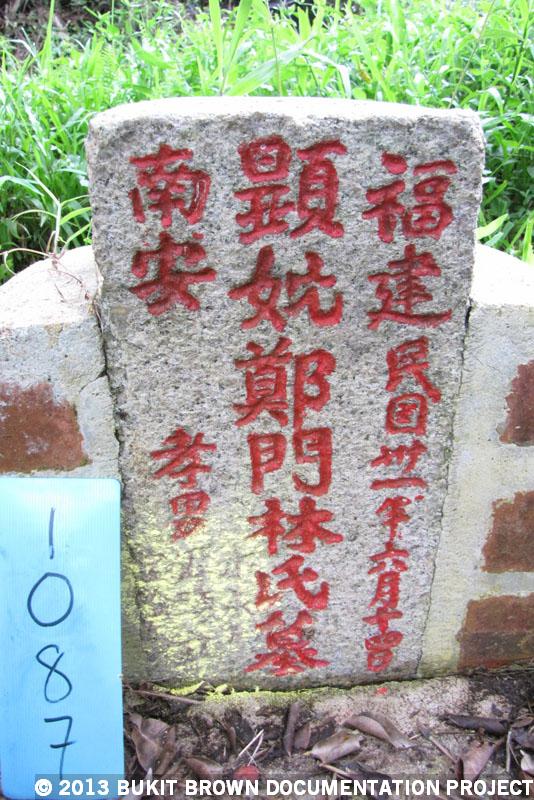 福建
民国卅一年六月十四日
顕妣鄭門林氏墓
南安
孝男
1087
© 2013 BUKIT BROWN DOCUMENTATION PROJECT